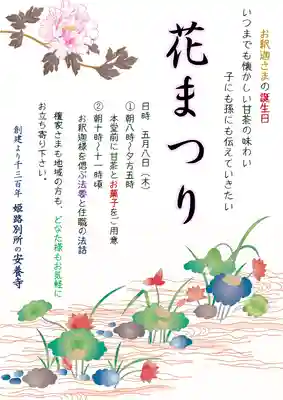 お釈迦さまの誕生日
いつまでも懐かしい甘茶の味わい
子にも孫にも伝えていきたい
花まつり
日時 五月八日(木)
①朝八時~夕方五時
本堂前に甘茶とお菓子をご用意
②朝十時~十一時頃
お釈迦様を偲ぶ法要と住職の法話
檀家さまも地域の方も、どなた様もお気軽に
お立ち寄り下さい。
創建より千三百年 姫路別所の安養寺